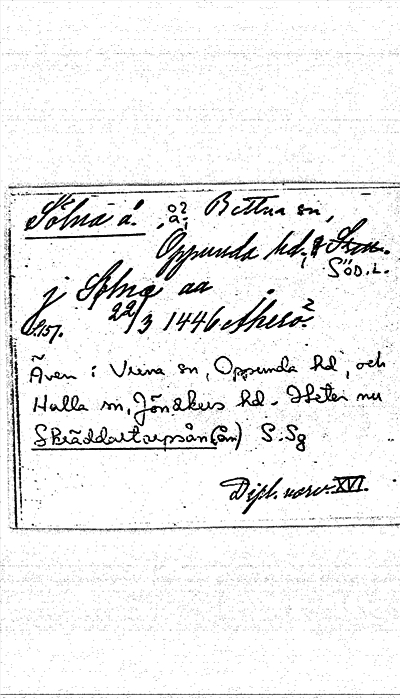 Sölna å. å? a? Bettna sn,
Oppunda hd,
SÖD.L.
j Sølnæ aa
s. 157. 22/3 1446 Åkerö?
Även i Vrena sn, Oppunda hd, och
Halla sn, Jönåkers hd. Heter nu
Skräddartorpsån (ån) S. Sg
Dipl. norv. XVI.